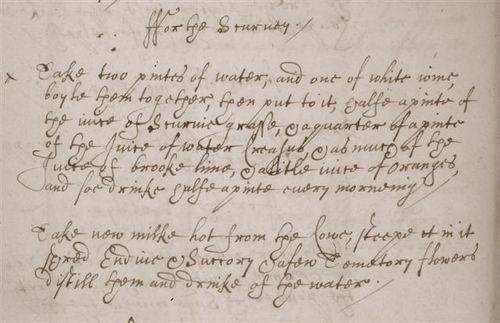 ffor the Scurvey
x Take two pintes of water, and one of white wine,
boyle them together, then put to it, halfe a pinte of
the iuce of Scurvie grasse, & a quarter of a pinte
of the Juice of water Creasus, & as much of the
Juice of brooke lime, & a litle iuce of oranges,
and soe drinke halfe a pinte every morneing
Take new milke hot from the Cowe, steepe it in it
Endive & Succory & a few flowers
distill them and drinke of the water.